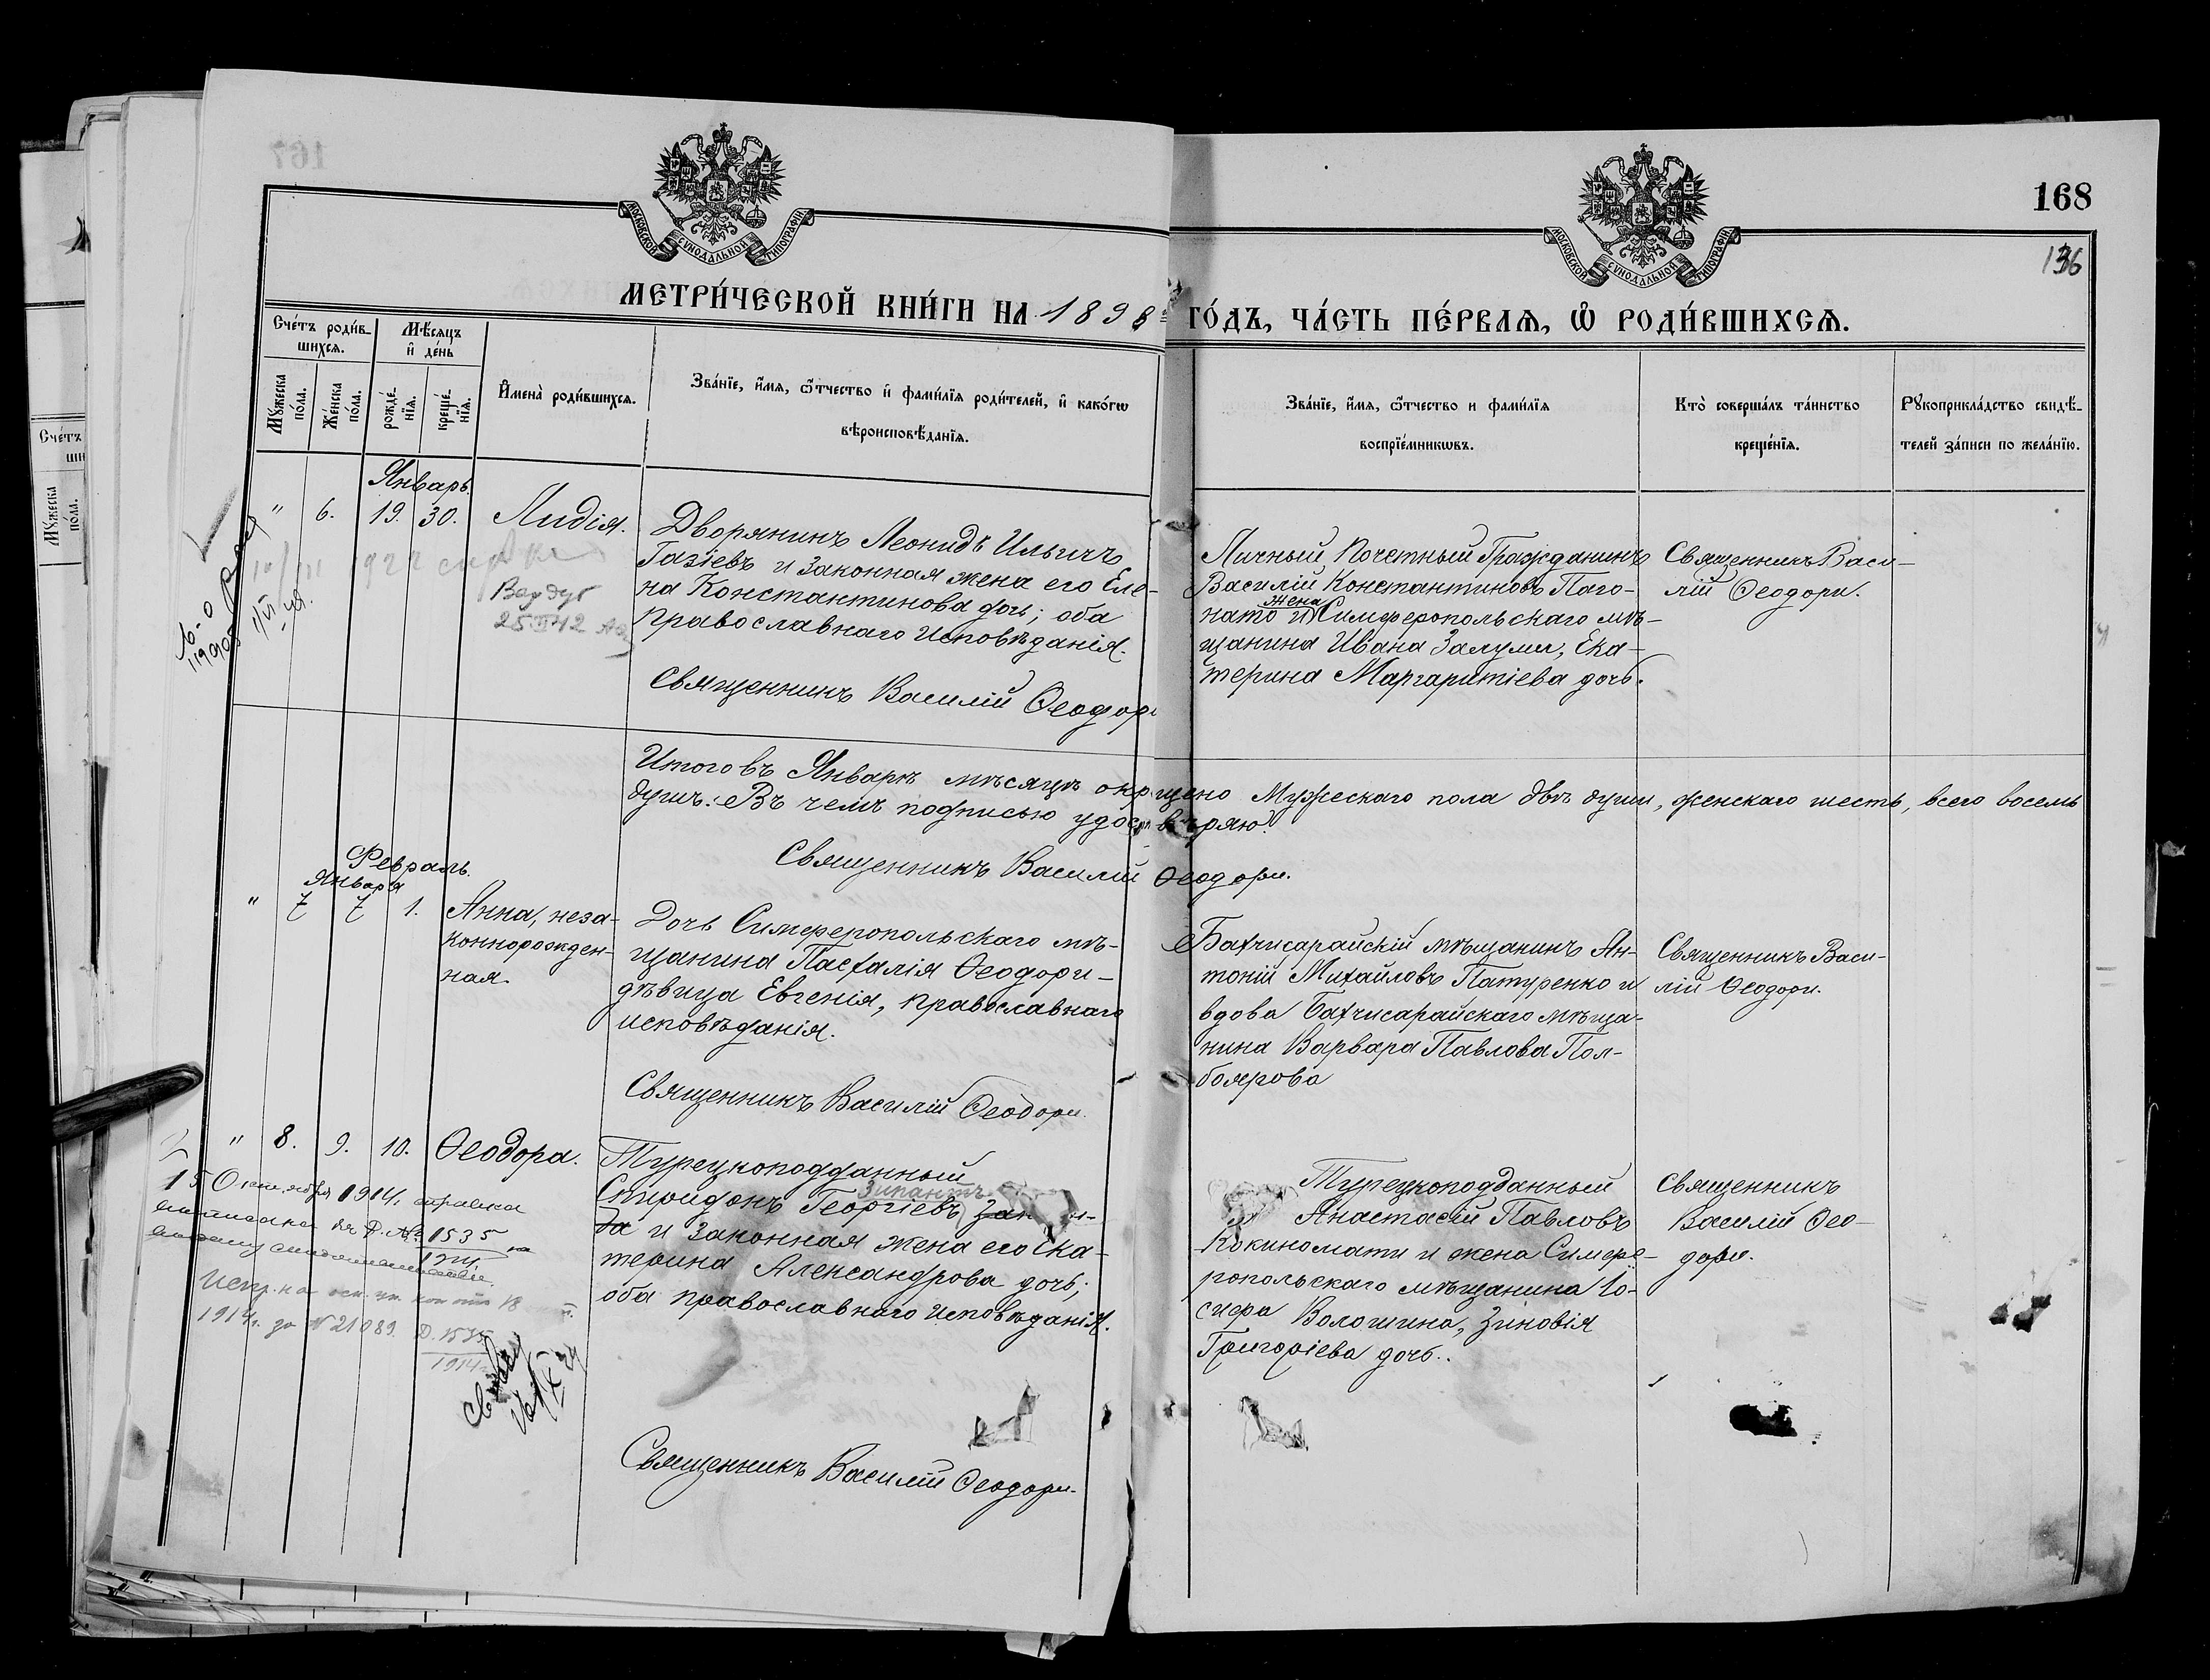 168
136
МОСКОВСКОЙ СѴНОДАЛЬНОЙ ТИПОГРАФІИ
МОСКОВСКОЙ СѴНОДАЛЬНОЙ ТИПОГРАФІИ
МЕТРИ́ЧЕСКОЙ КНИ́ГИ НА 1898 ГО́ДЪ, ЧА́СТЬ ПЕ́РВАѦ, Ѡ҆ РОДИ́ВШИХСѦ.
Сче́тъ роди́в-
шихсѧ.
Мѣ́сѧцъ
и҆ де́нь
Мꙋ́жеска
по́ла.
Же́нска
по́ла.
рожде́-
нїѧ.
креще́-
нїѧ.
И҆мена̀ роди́вшихсѧ.
Зва́нїе, и҆́мѧ, ѻ҆́тчество и҆ фами́лїѧ роди́телей, и҆ како́гѡ
вѣроисповѣ́данїѧ.
Зва́нїе, и҆́мѧ, ѻ҆́тчество и фами́лїѧ
воспрїе́мникѡвъ.
Кто̀ соверша́лъ та́инство
креще́нїѧ.
Рꙋкоприкла́дство свидѣ́-
телей за́писи по жела́нїю.
Январь.
" 6. 19. 30. Лидія.
Дворянинъ Леонидъ Ильичъ
Газіевъ и законная жена его Еле-
на Константинова дочь; оба
православнаго исповѣданія.
Священникъ Василій Ѳеодори
Личный Почетный Гражданинъ
Василій Константиновъ Паго-
нато и жена Симферопольскаго мѣ-
щанина Ивана Залумы, Ека-
терина Маргаритіева дочь.
Священникъ Васи-
лій Ѳеодори.
Итого въ Январѣ мѣсяцѣ окрещено мужескаго пола двѣ души, женскаго шесть, всего восемь
душъ. Въ чемъ подписью удостовѣряю.
Священникъ Василій Ѳеодори.
Февраль.
Января
" 7 7 1. Анна, неза-
коннорожден-
ная.
Дочь Симферопольскаго мѣ-
щанина Пасхалія Ѳеодори-
дѣвица Евгенія, православнаго
исповѣданія.
Священникъ Василій Ѳеодори.
Бахчисарайскій мѣщанинъ Ан-
тоній Михайловъ Патуренко и
вдова Бахчисарайскаго мѣща-
нина Варвара Павлова Пол-
боярова
Священникъ Васи-
лій Ѳеодори.
" 8. 9. 10. Ѳеодора.
Турецкоподданный
Спиридонъ Георгіевъ Зипантъ
да и законная жена его Ека-
терина Александрова дочь;
оба православнаго исповѣданія.
Священникъ Василій Ѳеодори.
Турецкоподданный
Анастасій Павловъ
Кокиномати и жена Симфе-
ропольскаго мѣщанина Іо-
сифа Волошина, Зиновія
Григоріева дочь.
Священникъ
Василій Ѳео-
дори.
15 Октября 1914 г. справка
1535
1914
1914 г. за № 21089. Д. 1535
1914
Сче́тъ
Мꙋ́жеска
по́ла.